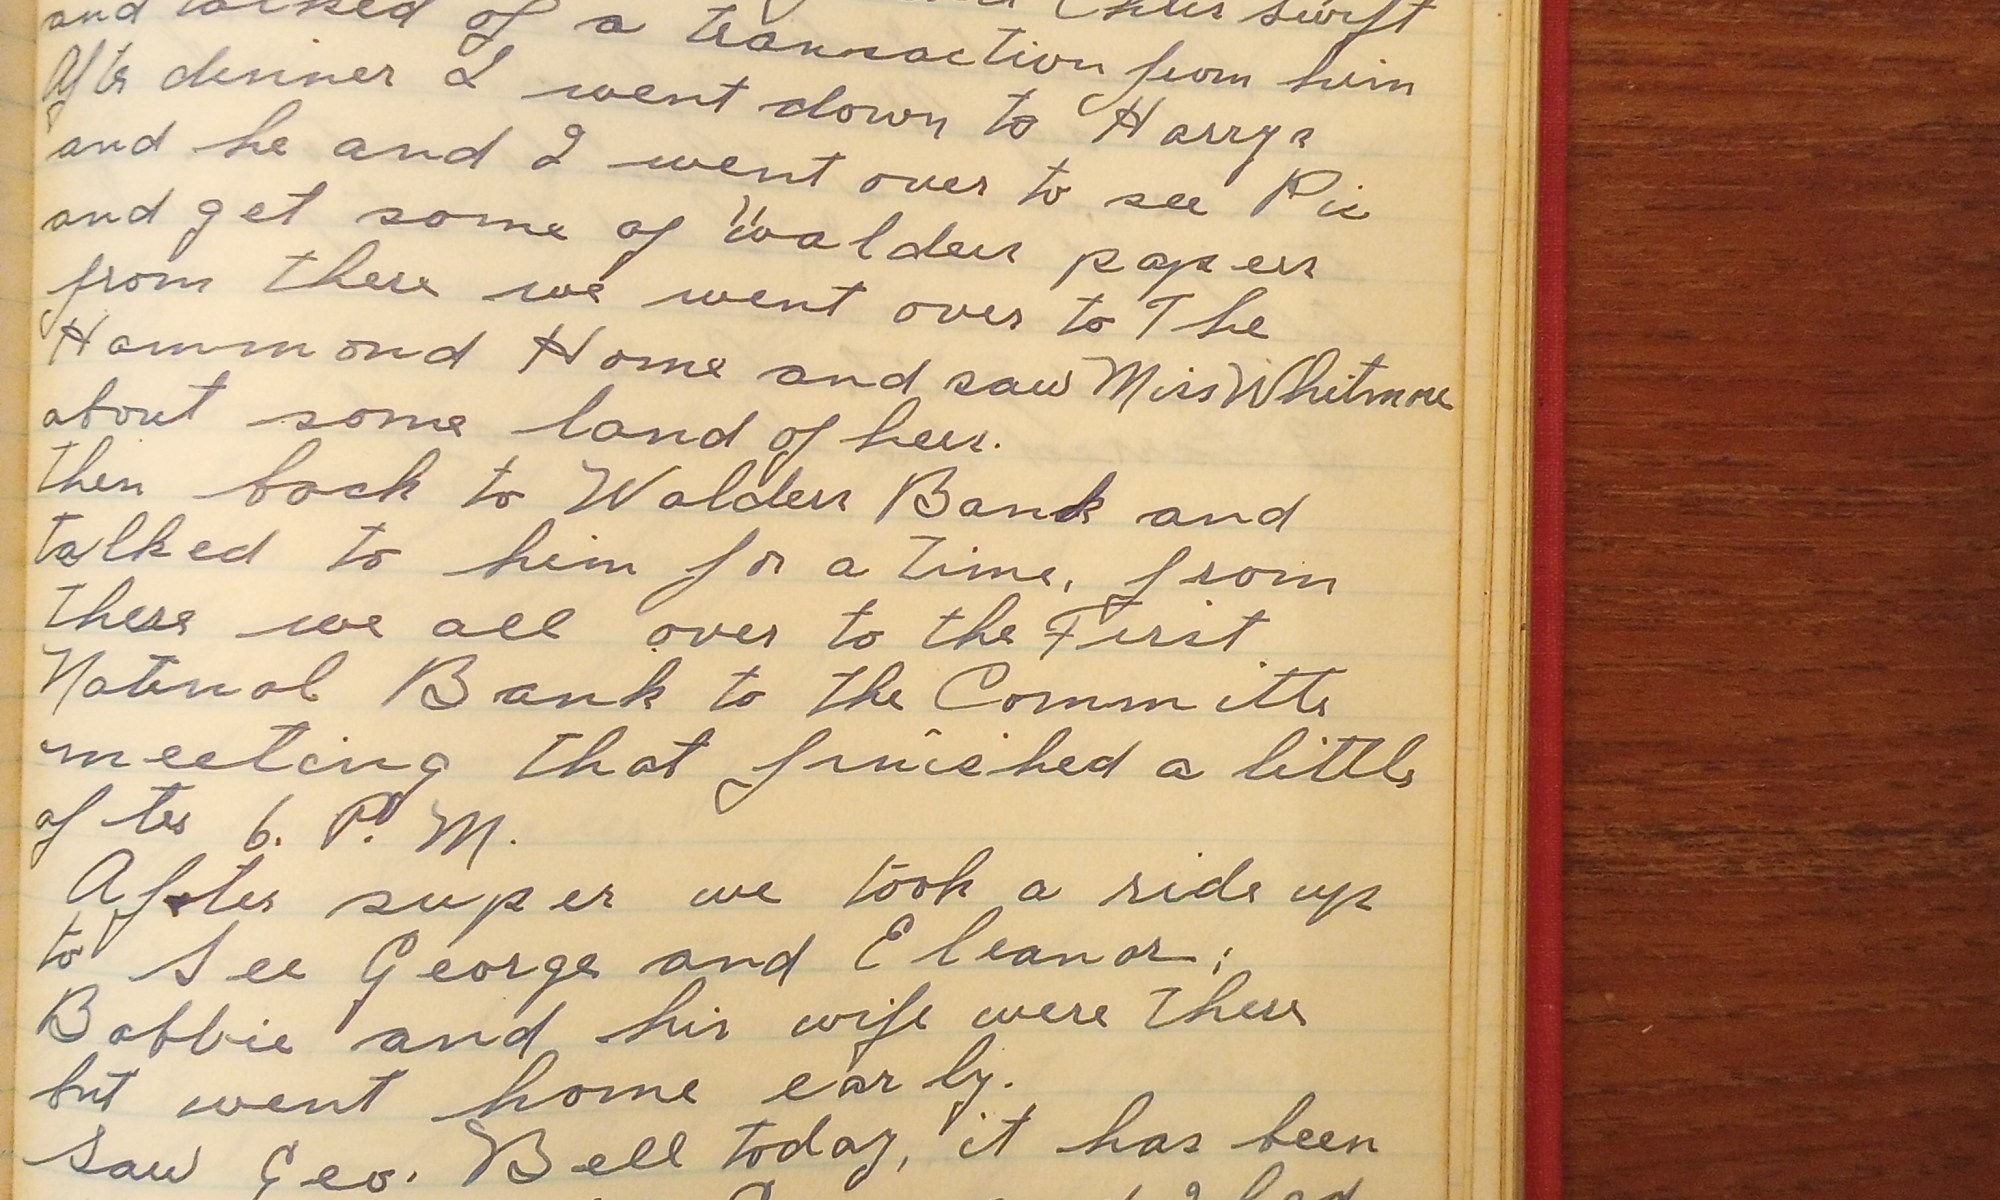 and talked of a transaction from him
After dinner I went down to Harrys
and he and I went over to see Pic
and get some of Walders papers
from there we went over to The
Hammond Home and saw Miss Whitmore
about some land of hers.
then back to Walders Bank and
talked to him for a time, from
there we all over to the First
National Bank to the Committe
meeting that finished a little
after 6. P. M.
After super we took a ride up
to See George and Eleanor.
Bobbie and his wife were there
but went home early.
Saw Geo. Bell today, it has been